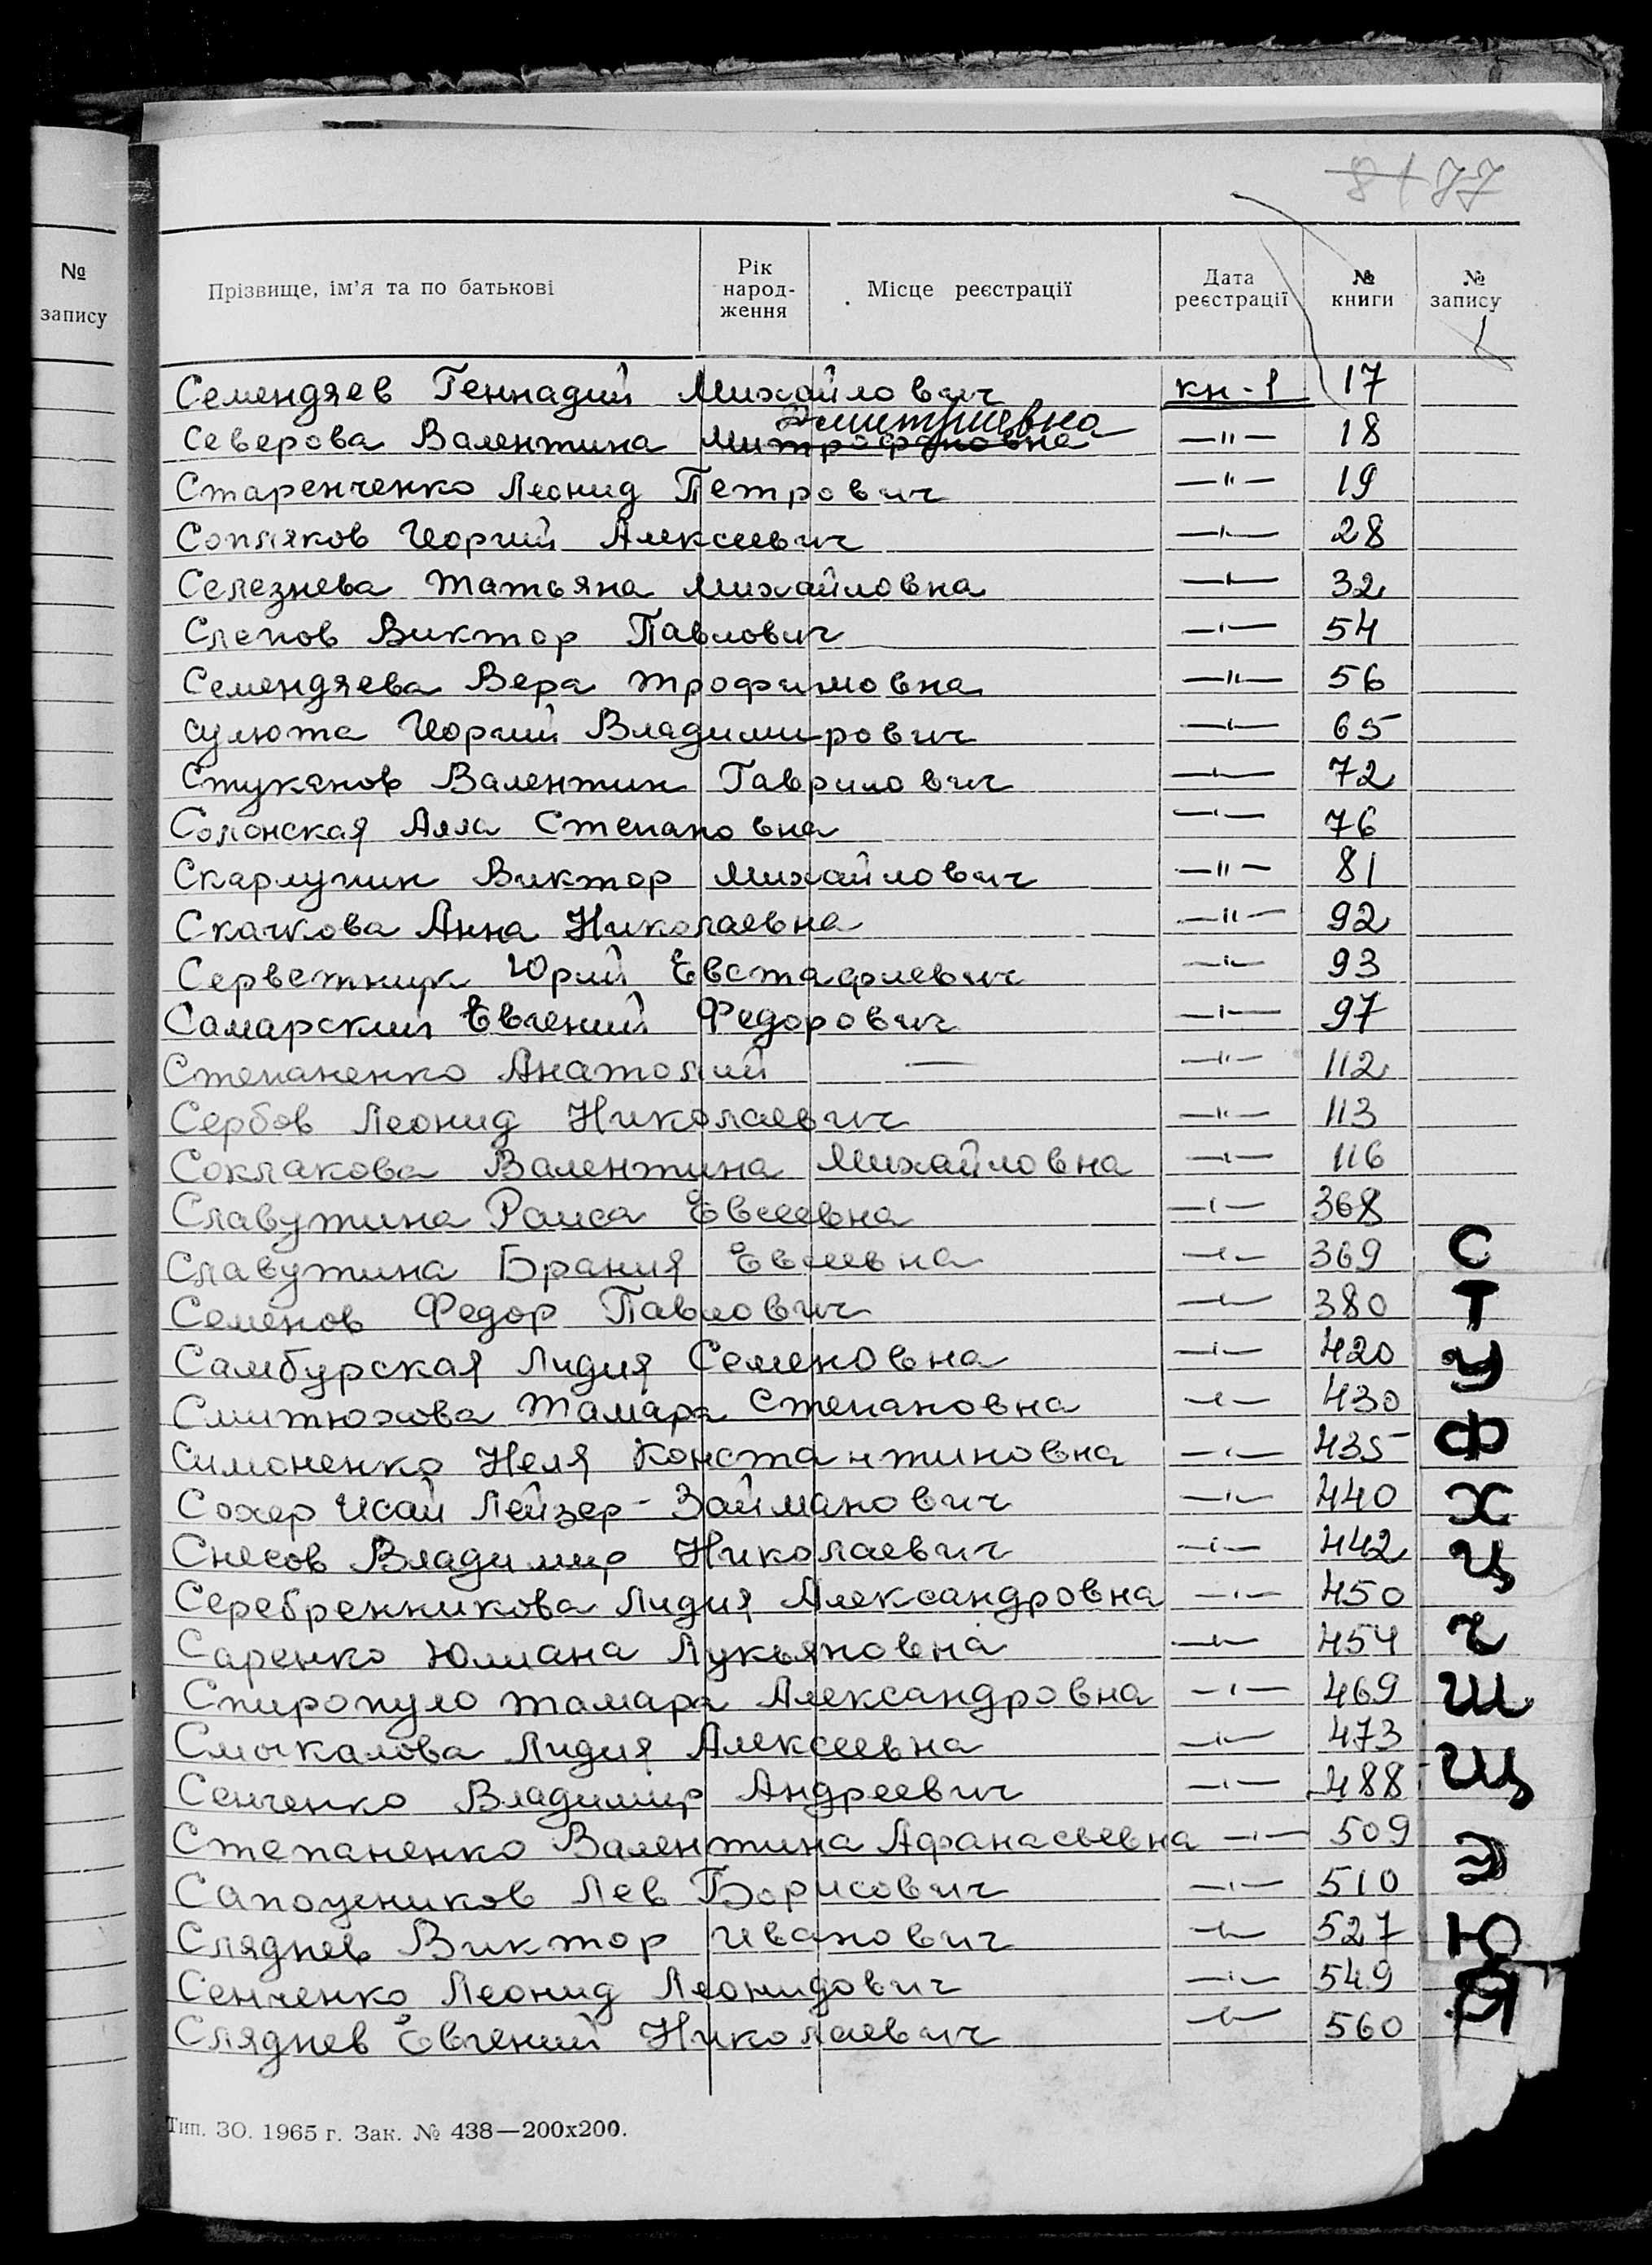 8/ 77
№ запису
Прізвище, ім’я та по батькові Рік народ-ження Місце реєстрації Дата реєстрації № книги № запису
Семендяев Геннадий Михайлович кн-1 17
Дмитриевна
Северова Валентина Митрофановна —"— 18
Старенченко Леонид Петрович —"— 19
Сопляков Георгий Алексеевич —"— 28
Селезнева Татьяна Михайловна —"— 32
Слепов Виктор Павлович —"— 54
Семендяева Вера Трофимовна —"— 56
Сулюта Георгий Владимирович —"— 65
Стуканов Валентин Гаврилович —"— 72
Солонская Алла Степановна —"— 76
Скарлупин Виктор Михайлович —"— 81
Скачкова Анна Николаевна —"— 92
Серветник Юрий Евстафиевич —"— 93
Самарский Евгений Федорович —"— 97
Степаненко Анатолий — —"— 112
Сербов Леонид Николаевич —"— 113
Соклакова Валентина Михайловна —"— 116
Славутина Раиса Евсеевна —"— 368
Славутина Брания Евсеевна —"— 369
Семенов Федор Павлович —"— 380
Самбурская Лидия Семеновна —"— 420
Смитюхова Тамара Степановна —"— 430
Симоненко Неля Константиновна —"— 435
Сохер Исай Лейзер-Займанович —"— 440
Снесов Владимир Николаевич —"— 442
Серебренникова Лидия Александровна —"— 450
Саренко Юлиана Лукьяновна —"— 454
Спиропуло Тамара Александровна —"— 469
Смыкалова Лидия Алексеевна —"— 473
Сенченко Владимир Андреевич —"— 488
Степаненко Валентина Афанасьевна —"— 509
Сапоцников Лев Борисович —"— 510
Сляднев Виктор Иванович —"— 527
Сенченко Леонид Леонидович —"— 549
Сляднев Евгений Николаевич —"— 560
С
Т
У
Ф
Х
Ц
Ч
Ш
Щ
Э
Ю
Я
Тип. ЗО. 1965 г. Зак. № 438—200х200.